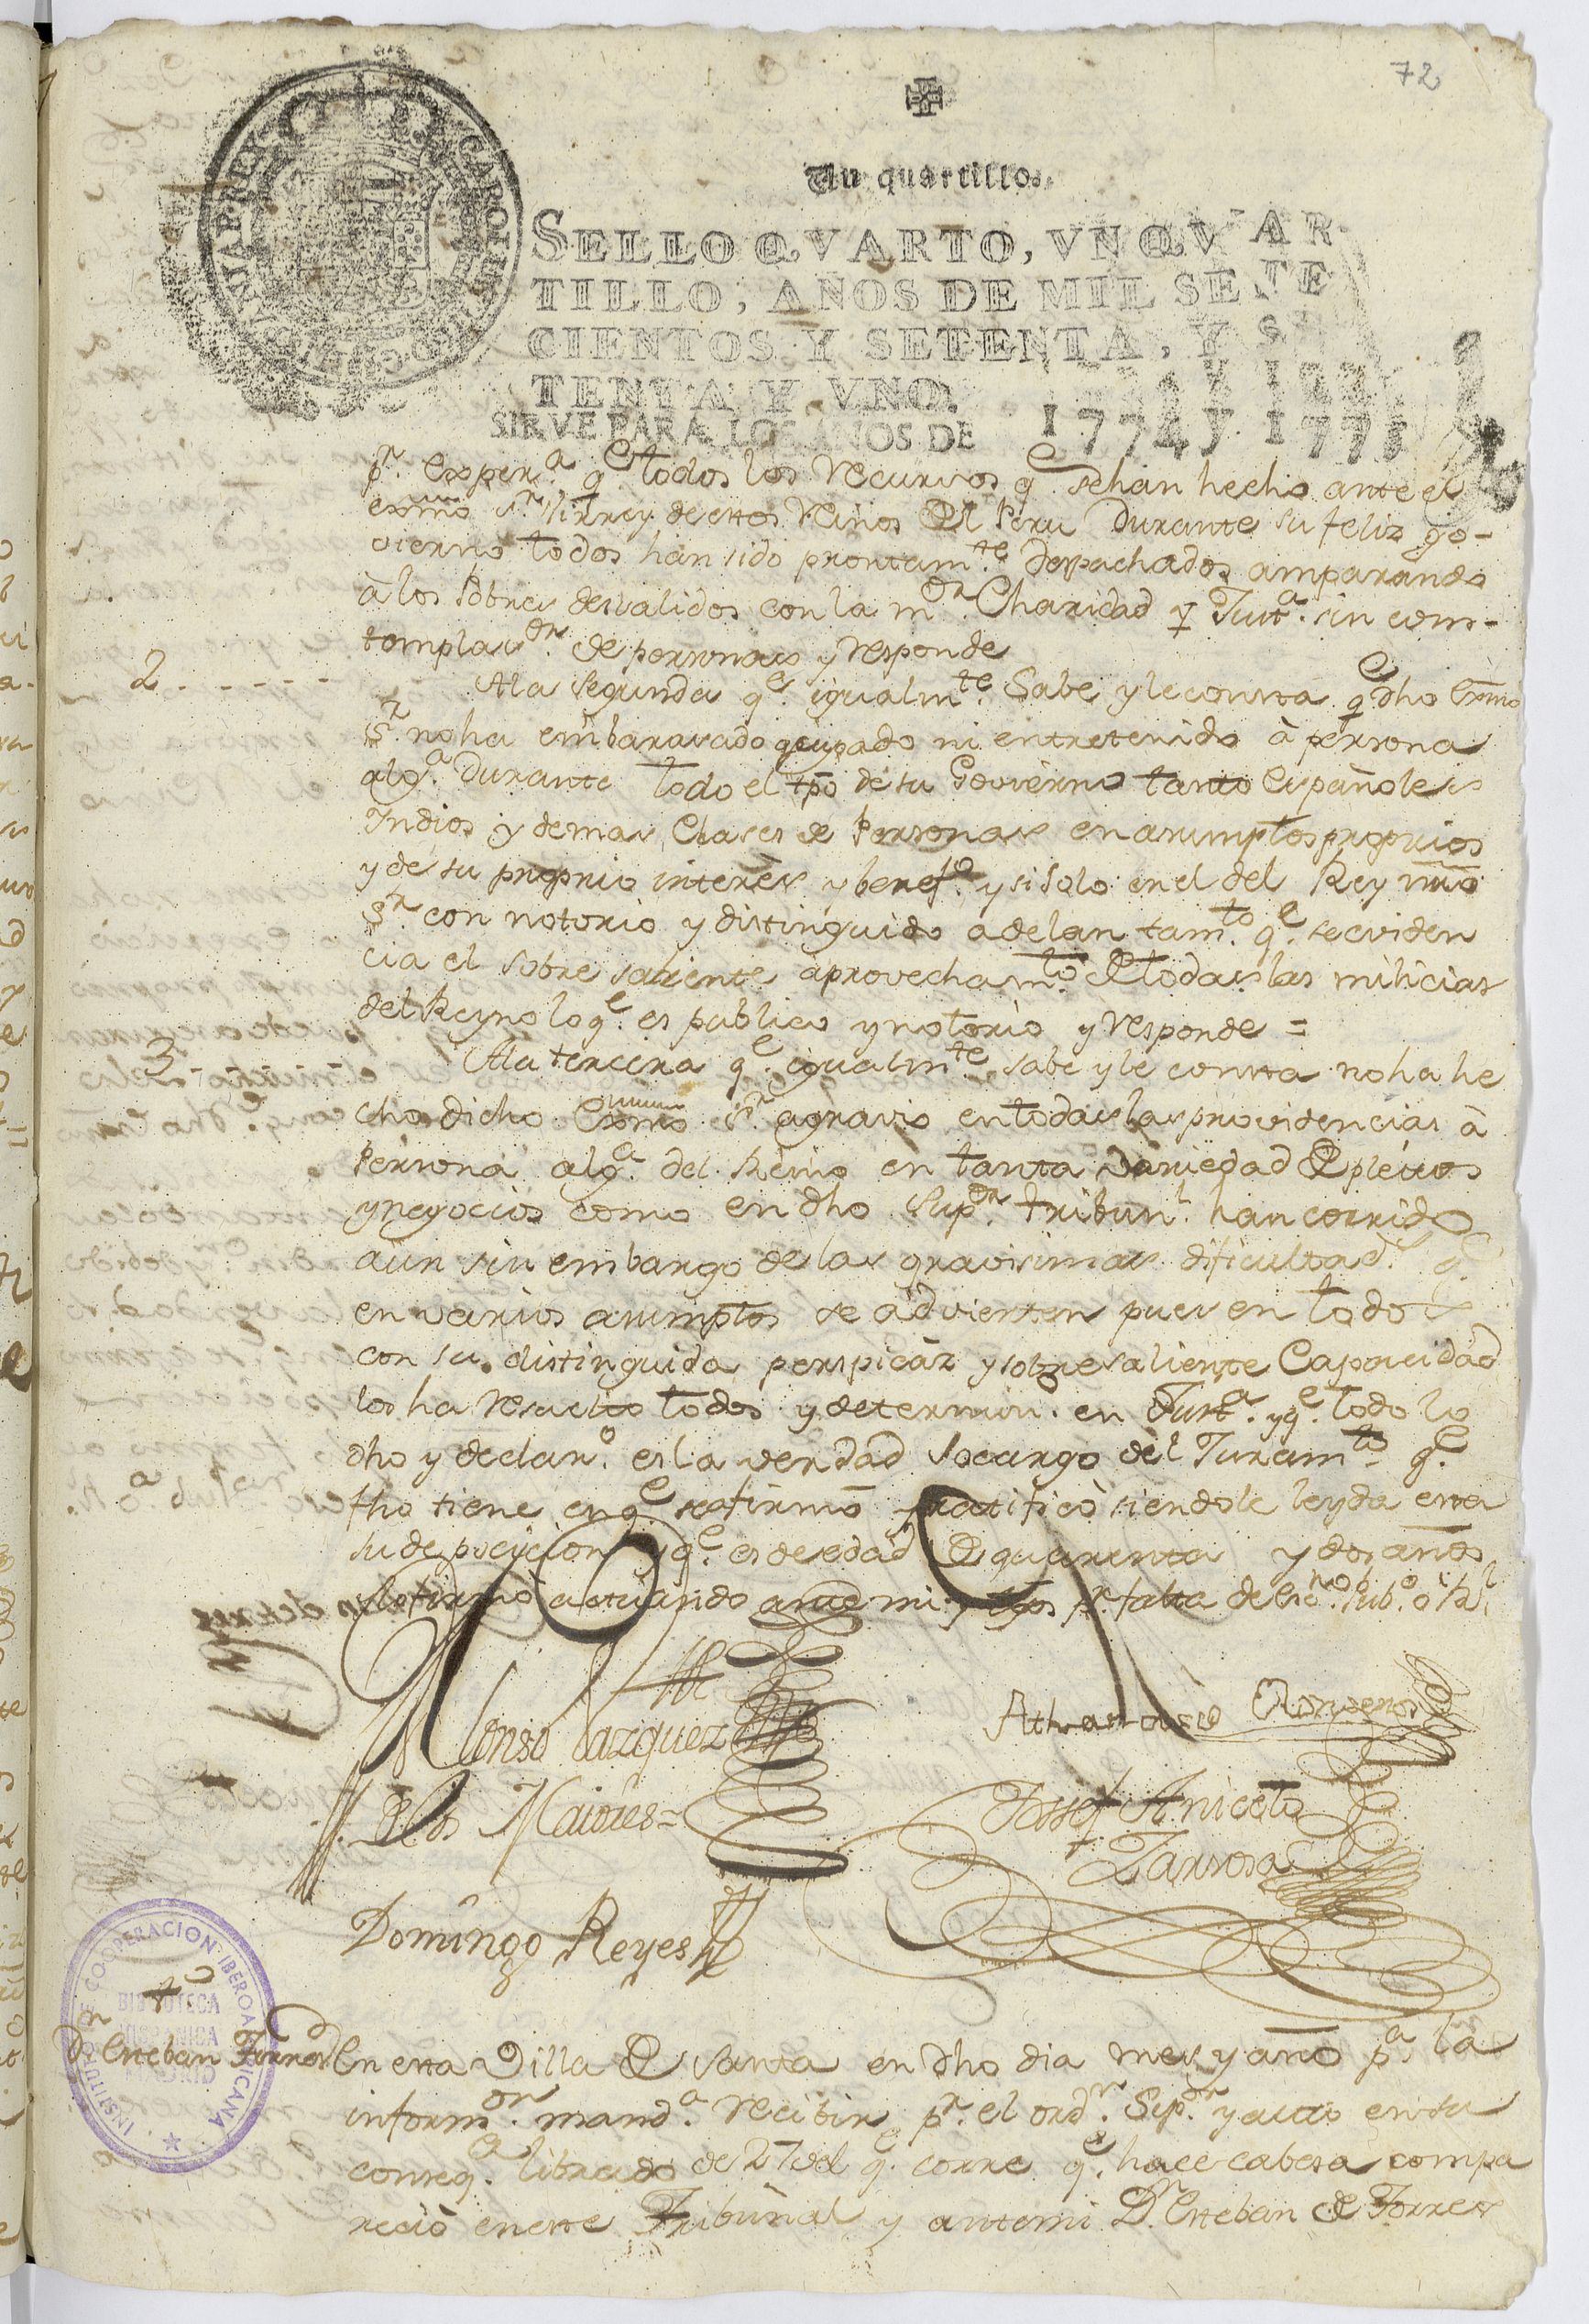 72
Un quartillo.
SELLO QVARTO, VN QVAR
TILLO, AÑOS DE MIL SETE
CIENTOS Y SETENTA, Y SE
TENTA Y VNO.
SIRVE PARA LOS AÑOS DE 1774 y 1775
pr. exper.a q.e todos los recursos q.e se han hecho ante el
exmo Sr. Virrey de estos Reinos del Peru Durante su feliz go-
vierno todos han sido prontam.te Despachados, amparando
à los Pobres desvalidos con la m.or Charidad y Just.a sin com-
templac.on de personas y responde
2 - - - - - A la segunda q.e igualm.te Sabe y le consta q.e dho Exmo
Sr. no ha embarasado ocupado ni entretenido à persona
alg.a Durante todo el tpo de su Govierno tanto Españoles
Indios y demas Clases de Personas en asumptos proprios
y de su proprio interes y benef.o y si solo en el del Rey nro
Sr. con notorio y distinguido adelantam.to q.e se eviden
cia el sobresaliente aprovecham.to de todas las milicias
del Reyno lo q.e es publico y notorio y responde =
3 - A la tercera q.e igualm.te sabe y le consta no ha he
cho dicho Exmo Sr. agravio en todas las providencias à
Persona alg.a del Reino en tanta variedad de pleitos
y negocios como en dho Sup.or tribun.l han corrido
aun sin embargo de las gravisimas dificultad.s q.e
en varios asumptos se advierten pues en todo
con su distinguida perspicàz y sobresaliente Capacidad
los ha resuelto todos y determin. en Just.a y q.e todo lo
dho y declar.o es la verdad socargo del Juram.to q.e
fho tiene en q.e se afirmò y ratificò siendole leyda esta
su deposicion y q.e es de edad de quarenta y dos años
y lo firmò actuando ante mi y tgos pr. falta de Esno. Pub.o ò Rl.
Alonso Vazquez
de los Maiores =
Domingo Reyes
Josef Aniceto
En esta Villa de Santa en dho dia mes y año pa. la
inform.on mand.a recibir pr. el ord.n Sup.or y auto en su
conseq.a librado de 27 del q.e corre q.e hace cabesa compa
reciò en este Tribunal y ante mi Dn. Esteban de Torres
Dn. Esteban Torres
INSTITUTO DE COOPERACION IBEROAMERICANA
BIBLIOTECA
HISPANICA
MADRID